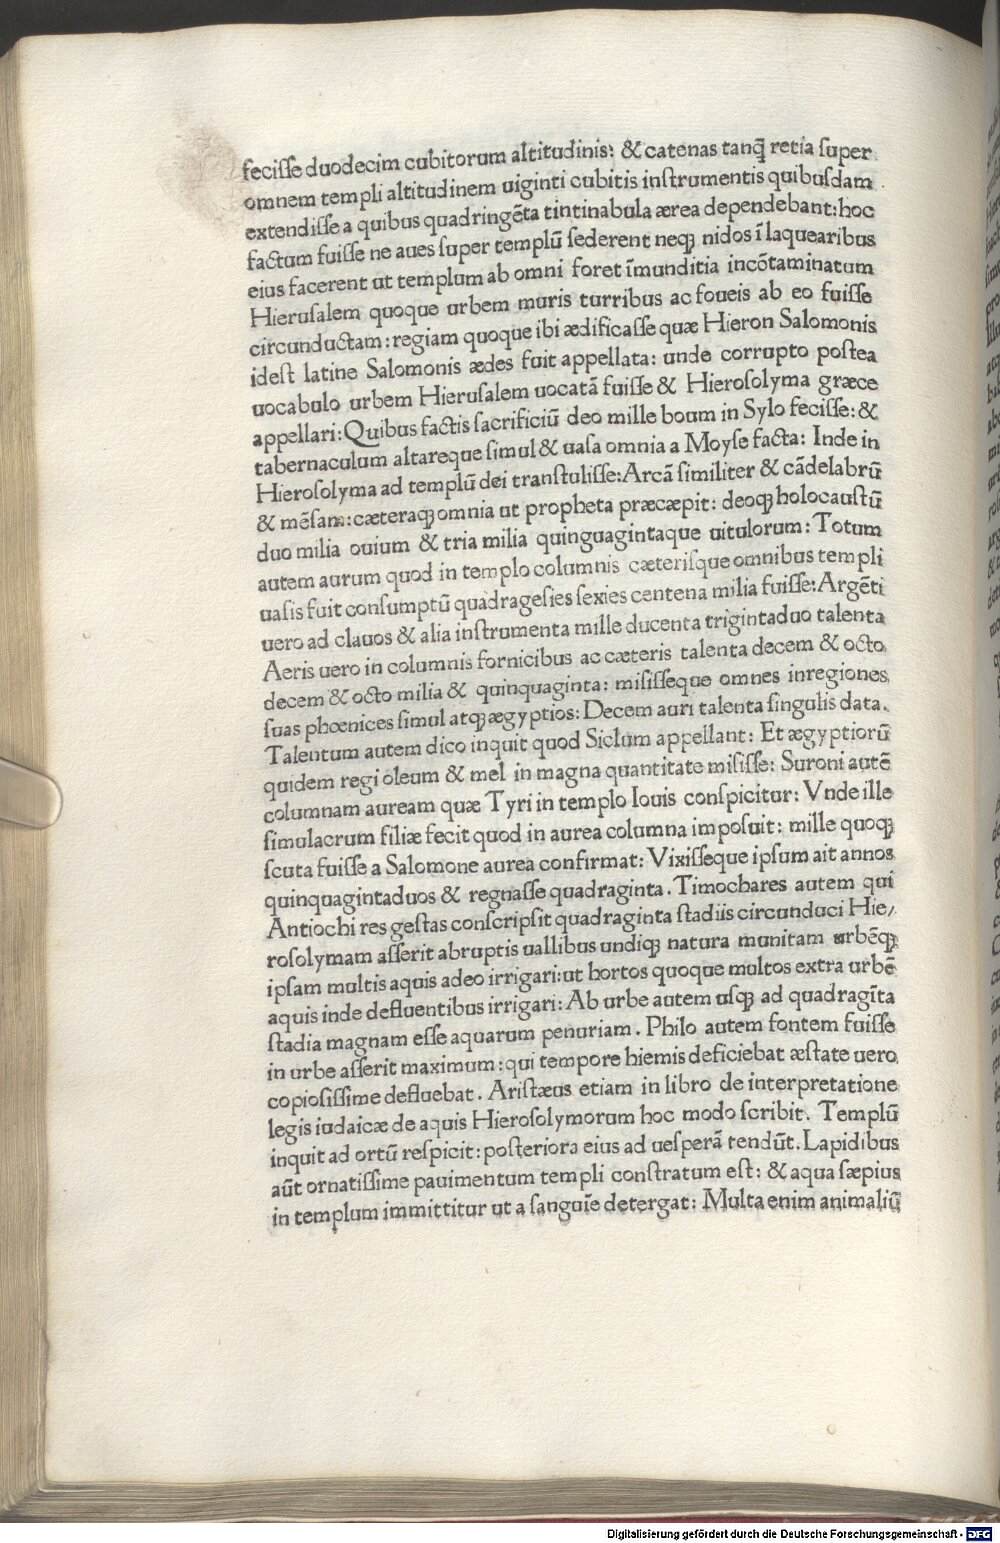 feciſſe duodecim cubitorum altitudinis: & catenas tanq̃ retia ſuper
omnem templi altitudinem uiginti cubitis inſtrumentis quibuſdam
extendiſſe a quibus quadringẽta tintinabula ærea dependebant: hoc
factum fuiſſe ne aues ſuper templũ ſederent neqꝫ nidos ĩ laquearibus
eius facerent ut templum ab omni foret ĩmunditia incõtaminatum
Hieruſalem quoque urbem muris turribus ac foueis ab eo fuiſſe
circunductam: regiam quoque ibi ædificaſſe quæ Hieron Salomonis
ideſt latine Salomonis ædes fuit appellata: unde corrupto poſtea
uocabulo urbem Hieruſalem uocatã fuiſſe & Hieroſolyma græce
appellari: Quibus factis ſacrificiũ deo mille boum in Sylo feciſſe: &
tabernaculum altareque ſimul & uaſa omnia a Moyſe facta: Inde in
Hieroſolyma ad templũ dei tranſtuliſſe: Arcã ſimiliter & cãdelabrũ
& mẽſam: cæteraqꝫ omnia ut propheta præcæpit: deoqꝫ holocauſtũ
duo milia ouium & tria milia quinguagintaque uitulorum: Totum
autem aurum quod in templo columnis cæteriſque omnibus templi
uaſis fuit conſumptũ quadrageſies ſexies centena milia fuiſſe: Argẽti
uero ad clauos & alia inſtrumenta mille ducenta trigintaduo talenta
Aeris uero in columnis fornicibus ac cæteris talenta decem & octo
decem & octo milia & quinquaginta: miſiſſeque omnes inregiones
ſuas phœnices ſimul atqꝫ ægyptios: Decem auri talenta ſingulis data.
Talentum autem dico inquit quod Siclum appellant: Et ægyptiorũ
quidem regi oleum & mel in magna quantitate miſiſſe: Suroni autẽ
columnam auream quæ Tyri in templo Iouis conſpicitur: Vnde ille
ſimulacrum filiæ fecit quod in aurea columna impoſuit: mille quoqꝫ
ſcuta fuiſſe a Salomone aurea confirmat: Vixiſſeque ipſum ait annos
quinquagintaduos & regnaſſe quadraginta. Timochares autem qui
Antiochi res geſtas conſcripſit quadraginta ſtadiis circunduci Hie/
roſolymam aſſerit abruptis uallibus undiqꝫ natura munitam urbẽqꝫ
ipſam multis aquis adeo irrigari: ut hortos quoque multos extra urbẽ
aquis inde defluentibus irrigari: Ab urbe autem uſqꝫ ad quadragĩta
ſtadia magnam eſſe aquarum penuriam. Philo autem fontem fuiſſe
in urbe aſſerit maximum: qui tempore hiemis deficiebat æſtate uero
copioſiſſime defluebat. Ariſtæus etiam in libro de interpretatione
legis iudaicæ de aquis Hieroſolymorum hoc modo ſcribit. Templũ
inquit ad ortũ reſpicit: poſteriora eius ad ueſperã tendũt. Lapidibus
aũt ornatiſſime pauimentum templi conſtratum eſt: & aqua ſæpius
in templum immittitur ut a ſanguĩe detergat: Multa enim animaliũ
Digitalisierung gefördert durch die Deutsche Forschungsgemeinschaft - DFG